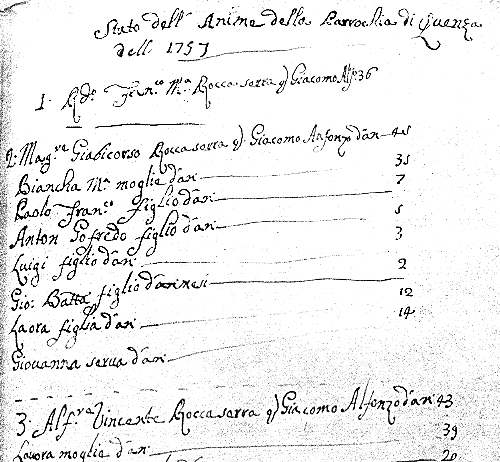 Stato dell' Anime della Parrochia di Quenza
dell 1757
1. R.do Fran.co M.a Rocca serra q) Giacomo Alf.o 36
2. Mag.co Giabicorso Rocca serra q) Giacomo Anfonzo d'an 45
Biancha M.a moglie d'an 35
Paolo Fran.co figlio d'an 7
Anton Gofredo figlio d'an 5
Luigi figlio d'an 3
Gio: Batta figlio d'an mesi 2
Laora figlia d'an 12
Giovanna serva d'an 14
3. Alf. Vincente Rocca serra q) Giacomo Alfonzo d'an 43
Lavora moglie d'an 39
20